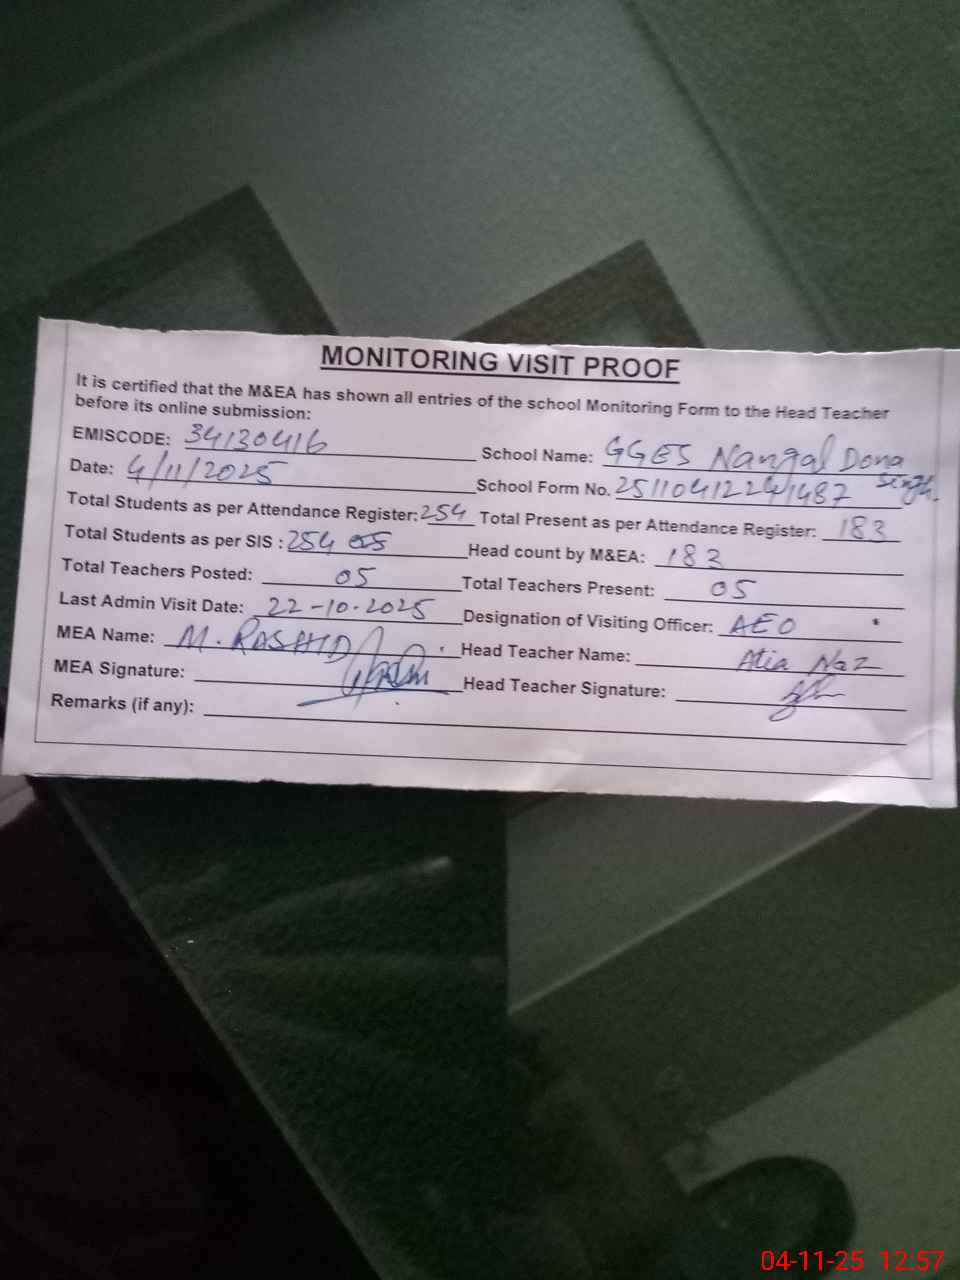 MONITORING VISIT PROOF
It is certified that the M&EA has shown all entries of the school Monitoring Form to the Head Teacher
before its online submission:
EMISCODE: 34130416 School Name: GGES Nangal Dona Singh.
Date: 4/11/2025 School Form No. 251104122241487
Total Students as per Attendance Register: 254 Total Present as per Attendance Register: 183
Total Students as per SIS : 254 Head count by M&EA: 183
Total Teachers Posted: 05 Total Teachers Present: 05
Last Admin Visit Date: 22-10-2025 Designation of Visiting Officer: AEO
MEA Name: M. RASHID Head Teacher Name: Atia Naz
MEA Signature: Head Teacher Signature:
Remarks (if any):
04-11-25 12:57